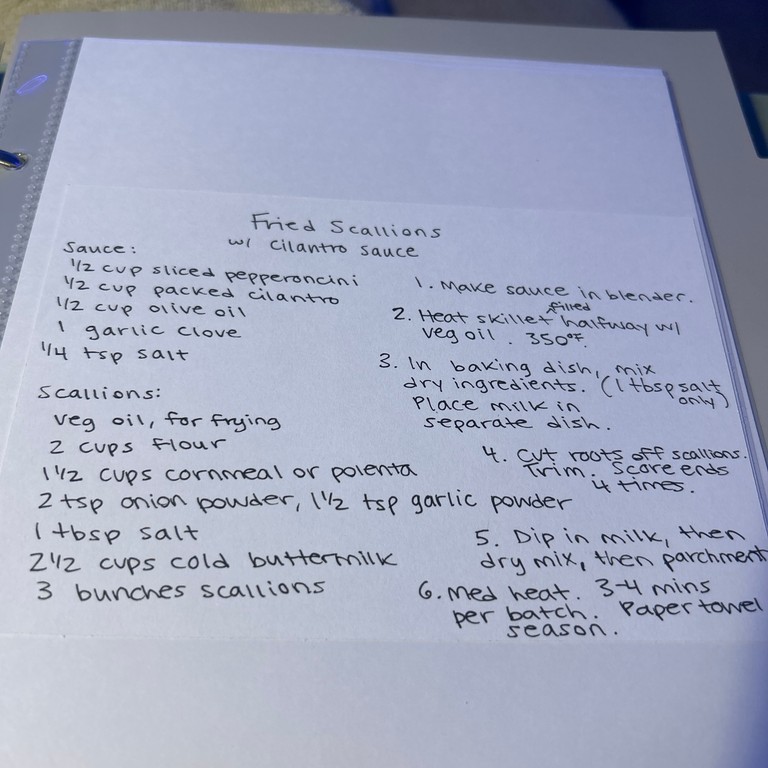 Fried Scallions
w/ cilantro sauce
Sauce:
1/2 cup sliced pepperoncini
1/2 cup packed cilantro
1/2 cup olive oil
1 garlic clove
1/4 tsp salt
Scallions:
veg oil, for frying
2 cups flour
1 1/2 cups cornmeal or polenta
2 tsp onion powder, 1 1/2 tsp garlic powder
1 tbsp salt
2 1/2 cups cold buttermilk
3 bunches scallions
1. Make sauce in blender.
filled
2. Heat skillet halfway w/
veg oil. 350°F.
3. In baking dish, mix
dry ingredients. (1 tbsp salt
only)
Place milk in
separate dish.
4. Cut roots off scallions.
Trim. Score ends
4 times.
5. Dip in milk, then
dry mix, then parchment
6. Med heat. 3-4 mins
per batch. Paper towel
season.